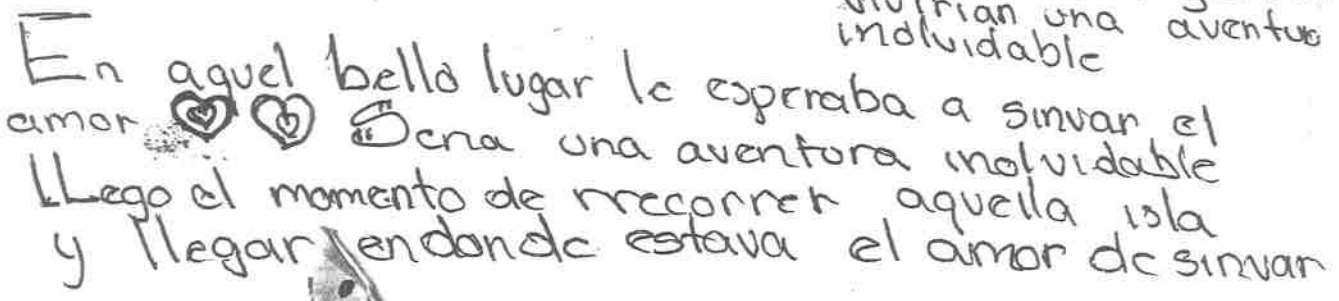 vivirian una aventura
inolvidable
En aquel bello lugar le esperaba a sinvar el
amor Seria una aventura inolvidable
LLego el momento de rrecorrer aquella isla
y llegar endonde estava el amor de sinvar